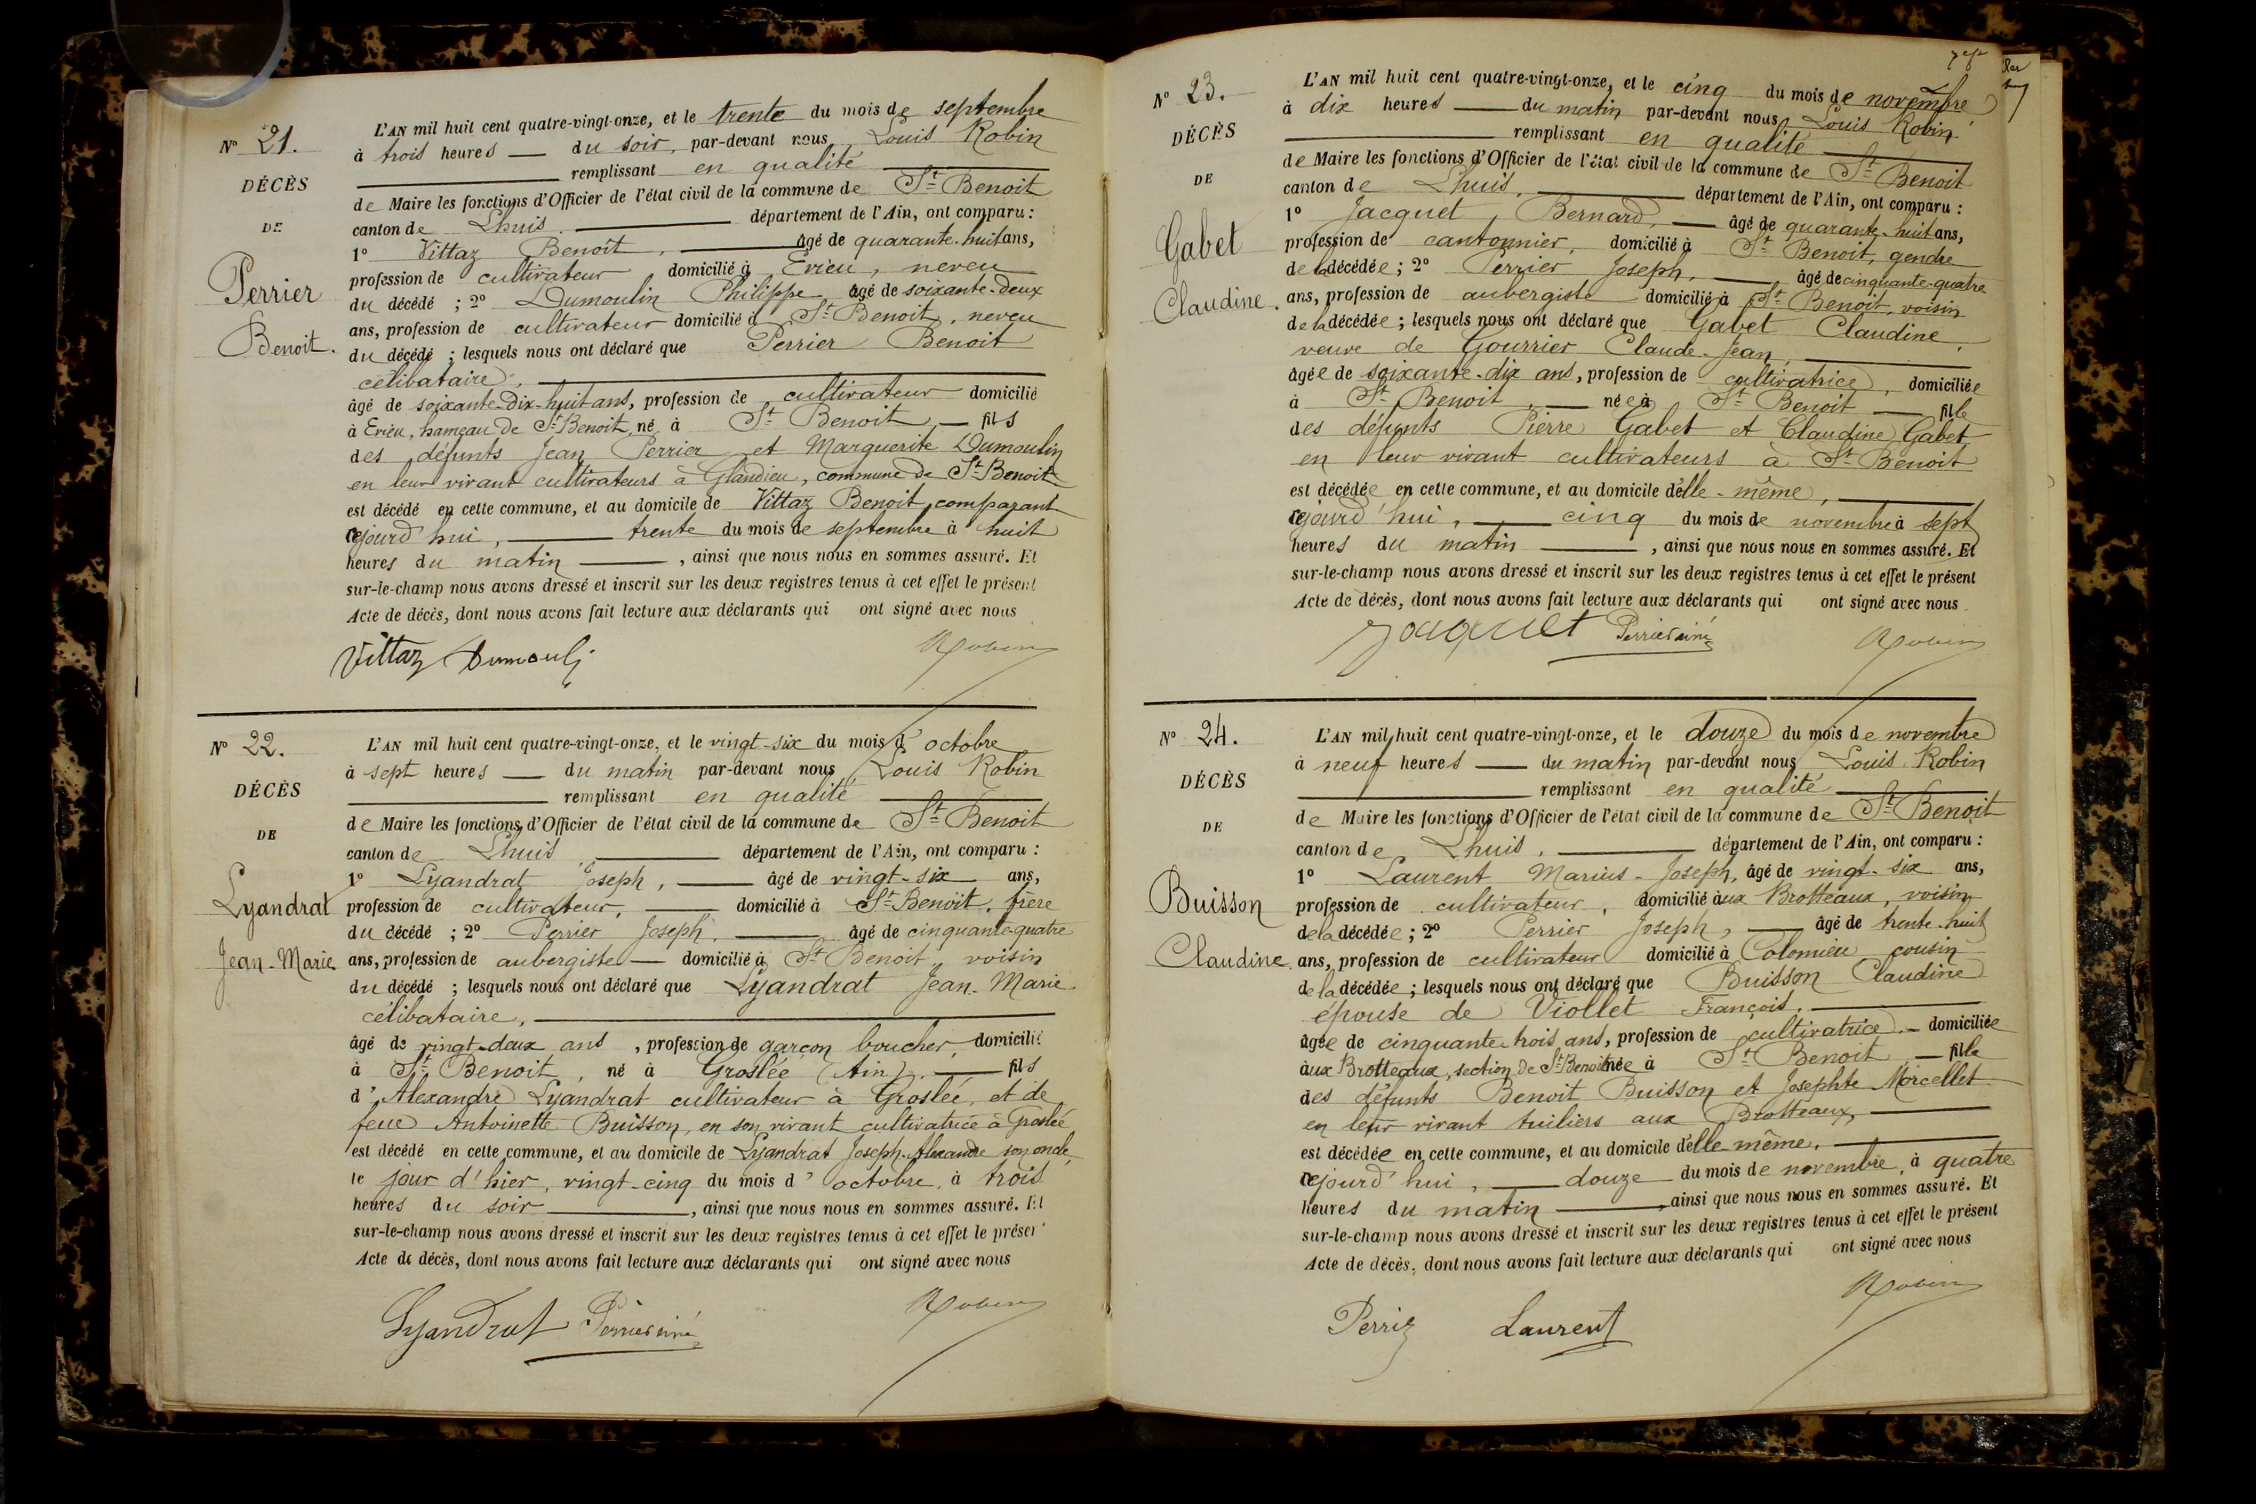 N° 21.
DÉCÈS
DE
Perrier
Benoit.
L'AN mil huit cent quatre-vingt-onze, et le trente du mois de septembre
à trois heures du soir, par-devant nous Louis Robin
remplissant en qualité
de Maire les fonctions d'Officier de l'état civil de la commune de St Benoit
canton de Lhuis. département de l'Ain, ont comparu :
1° Vittaz Benoit, âgé de quarante-huit ans,
profession de cultivateur domicilié à Evieu, neveu
du décédé ; 2° Dumoulin Philippe âgé de soixante-deux
ans, profession de cultivateur domicilié à St Benoit, neveu
du décédé ; lesquels nous ont déclaré que Perrier Benoit
célibataire,
âgé de soixante-dix-huit ans, profession de cultivateur domicilié
à Evieu, hameau de St Benoit, né à St Benoit, fils
des défunts Jean Perrier et Marguerite Dumoulin
en leur vivant cultivateurs à Glandieu, commune de St Benoit
est décédé en cette commune, et au domicile de Vittaz Benoit, comparant
cejourd'hui, trente du mois de septembre à huit
heures du matin, ainsi que nous nous en sommes assuré. Et
sur-le-champ nous avons dressé et inscrit sur les deux registres tenus à cet effet le présent
Acte de décès, dont nous avons fait lecture aux déclarants qui ont signé avec nous
Vittaz Dumouli Robin
N° 22.
DÉCÈS
DE
Lyandrat
Jean-Marie
L'AN mil huit cent quatre-vingt-onze, et le vingt-six du mois d'octobre
à sept heures du matin par-devant nous, Louis Robin
remplissant en qualité
de Maire les fonctions d'Officier de l'état civil de la commune de St Benoit
canton de Lhuis département de l'Ain, ont comparu :
1° Lyandrat Joseph, âgé de vingt-six ans,
profession de cultivateur, domicilié à St Benoit, frère
du décédé ; 2° Perrier Joseph, âgé de cinquante-quatre
ans, profession de aubergiste domicilié à St Benoit, voisin
du décédé ; lesquels nous ont déclaré que Lyandrat Jean-Marie
célibataire,
âgé de vingt-deux ans, profession de garçon boucher, domicilié
à St Benoit, né à Groslée (Ain), fils
d'Alexandre Lyandrat cultivateur à Groslée, et de
feue Antoinette Buisson, en son vivant cultivatrice à Groslée
est décédé en cette commune, et au domicile de Lyandrat Joseph-Alexandre son oncle,
le jour d'hier, vingt-cinq du mois d'octobre, à trois
heures du soir, ainsi que nous nous en sommes assuré. Et
sur-le-champ nous avons dressé et inscrit sur les deux registres tenus à cet effet le présent
Acte de décès, dont nous avons fait lecture aux déclarants qui ont signé avec nous
Lyandrat Perrier ainé Robin
N° 23.
DÉCÈS
DE
Gabet
Claudine.
L'AN mil huit cent quatre-vingt-onze, et le cinq du mois de novembre
à dix heures du matin par-devant nous, Louis Robin
remplissant en qualité
de Maire les fonctions d'Officier de l'état civil de la commune de St Benoit
canton de Lhuis, département de l'Ain, ont comparu :
1° Jacquet, Bernard, âgé de quarante-huit ans,
profession de cantonnier, domicilié à St Benoit, gendre
de la décédée ; 2° Perrier Joseph, âgé de cinquante-quatre
ans, profession de aubergiste domicilié à St Benoit, voisin
de la décédée ; lesquels nous ont déclaré que Gabet Claudine,
veuve de Gourrier Claude-Jean,
âgée de soixante-dix ans, profession de cultivatrice, domiciliée
à St Benoit, née à St Benoit fille
des défunts Pierre Gabet et Claudine Gabet
en leur vivant cultivateurs à St Benoit
est décédée en cette commune, et au domicile d'elle-même,
cejourd'hui, cinq du mois de novembre à sept
heures du matin, ainsi que nous nous en sommes assuré. Et
sur-le-champ nous avons dressé et inscrit sur les deux registres tenus à cet effet le présent
Acte de décès, dont nous avons fait lecture aux déclarants qui ont signé avec nous
Jacquet Perrier ainé Robin
N° 24.
DÉCÈS
DE
Buisson
Claudine.
L'AN mil huit cent quatre-vingt-onze, et le douze du mois de novembre
à neuf heures du matin par-devant nous Louis Robin
remplissant en qualité
de Maire les fonctions d'Officier de l'état civil de la commune de St Benoit
canton de Lhuis, département de l'Ain, ont comparu :
1° Laurent Marius-Joseph, âgé de vingt-six ans,
profession de cultivateur, domicilié aux Brotteaux, voisin
de la décédée ; 2° Perrier Joseph, âgé de trente-huit
ans, profession de cultivateur domicilié à Colomieu cousin
de la décédée ; lesquels nous ont déclaré que Buisson Claudine
épouse de Viollet François,
âgée de cinquante-trois ans, profession de cultivatrice, domiciliée
aux Brotteaux, section de St Benoit née à St Benoit fille
des défunts Benoit Buisson et Josephte Morcellet
en leur vivant tuiliers aux Brotteaux,
est décédée en cette commune, et au domicile d'elle-même,
cejourd'hui, douze du mois de novembre, à quatre
heures du matin, ainsi que nous nous en sommes assuré. Et
sur-le-champ nous avons dressé et inscrit sur les deux registres tenus à cet effet le présent
Acte de décès, dont nous avons fait lecture aux déclarants qui ont signé avec nous
Perrier Laurent Robin